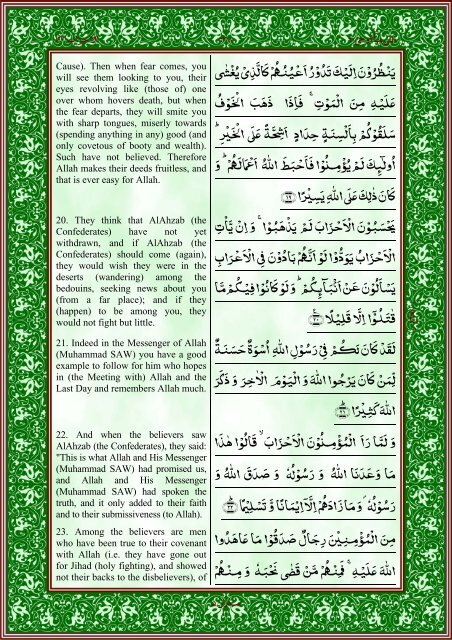 Cause). Then when fear comes, you
will see them looking to you, their
eyes revolving like (those of) one
over whom hovers death, but when
the fear departs, they will smite you
with sharp tongues, miserly towards
(spending anything in any) good (and
only covetous of booty and wealth).
Such have not believed. Therefore
Allah makes their deeds fruitless, and
that is ever easy for Allah.
يَنْظُرُوْنَ اِلَيْكَ تَدُوْرُ اَعْيُنُهُمْ كَالَّذِيْ يُغْشٰى
عَلَيْهِ مِنَ الْمَوْتِ ۚ فَاِذَا ذَهَبَ الْخَوْفُ
سَلَقُوْكُمْ بِاَلْسِنَةٍ حِدَادٍ اَشِحَّةً عَلَى الْخَيْرِ ؕ
اُولٰٓئِكَ لَمْ يُؤْمِنُوْا فَاَحْبَطَ اللّٰهُ اَعْمَالَهُمْ ؕ وَ
كَانَ ذٰلِكَ عَلَى اللّٰهِ يَسِيْرًا ﴿۱۹﴾
20. They think that AlAhzab (the
Confederates) have not yet
withdrawn, and if AlAhzab (the
Confederates) should come (again),
they would wish they were in the
deserts (wandering) among the
bedouins, seeking news about you
(from a far place); and if they
(happen) to be among you, they
would not fight but little.
يَحْسَبُوْنَ الْاَحْزَابَ لَمْ يَذْهَبُوْا ۚ وَ اِنْ يَّاْتِ
الْاَحْزَابُ يَوَدُّوْا لَوْ اَنَّهُمْ بَادُوْنَ فِي الْاَعْرَابِ
يَسْاَلُوْنَ عَنْ اَنْۢبَآئِكُمْ ؕ وَ لَوْ كَانُوْا فِيْكُمْ مَّا
قٰتَلُوْٓا اِلَّا قَلِيْلًا ﴿۲۰﴾
21. Indeed in the Messenger of Allah
(Muhammad SAW) you have a good
example to follow for him who hopes
in (the Meeting with) Allah and the
Last Day and remembers Allah much.
لَقَدْ كَانَ لَكُمْ فِيْ رَسُوْلِ اللّٰهِ اُسْوَةٌ حَسَنَةٌ
لِّمَنْ كَانَ يَرْجُوا اللّٰهَ وَ الْيَوْمَ الْاٰخِرَ وَ ذَكَرَ
اللّٰهَ كَثِيْرًا ﴿۲۱﴾
22. And when the believers saw
AlAhzab (the Confederates), they said:
"This is what Allah and His Messenger
(Muhammad SAW) had promised us,
and Allah and His Messenger
(Muhammad SAW) had spoken the
truth, and it only added to their faith
and to their submissiveness (to Allah).
وَ لَمَّا رَاَ الْمُؤْمِنُوْنَ الْاَحْزَابَ ۙ قَالُوْا هٰذَا
مَا وَعَدَنَا اللّٰهُ وَ رَسُوْلُهٗ وَ صَدَقَ اللّٰهُ وَ
رَسُوْلُهٗ ؗ وَ مَا زَادَهُمْ اِلَّاۤ اِيْمَانًا وَّ تَسْلِيْمًا ﴿۲۲﴾
23. Among the believers are men
who have been true to their covenant
with Allah (i.e. they have gone out
for Jihad (holy fighting), and showed
not their backs to the disbelievers), of
مِنَ الْمُؤْمِنِيْنَ رِجَالٌ صَدَقُوْا مَا عَاهَدُوا
اللّٰهَ عَلَيْهِ ۚ فَمِنْهُمْ مَّنْ قَضٰى نَحْبَهٗ وَ مِنْهُمْ